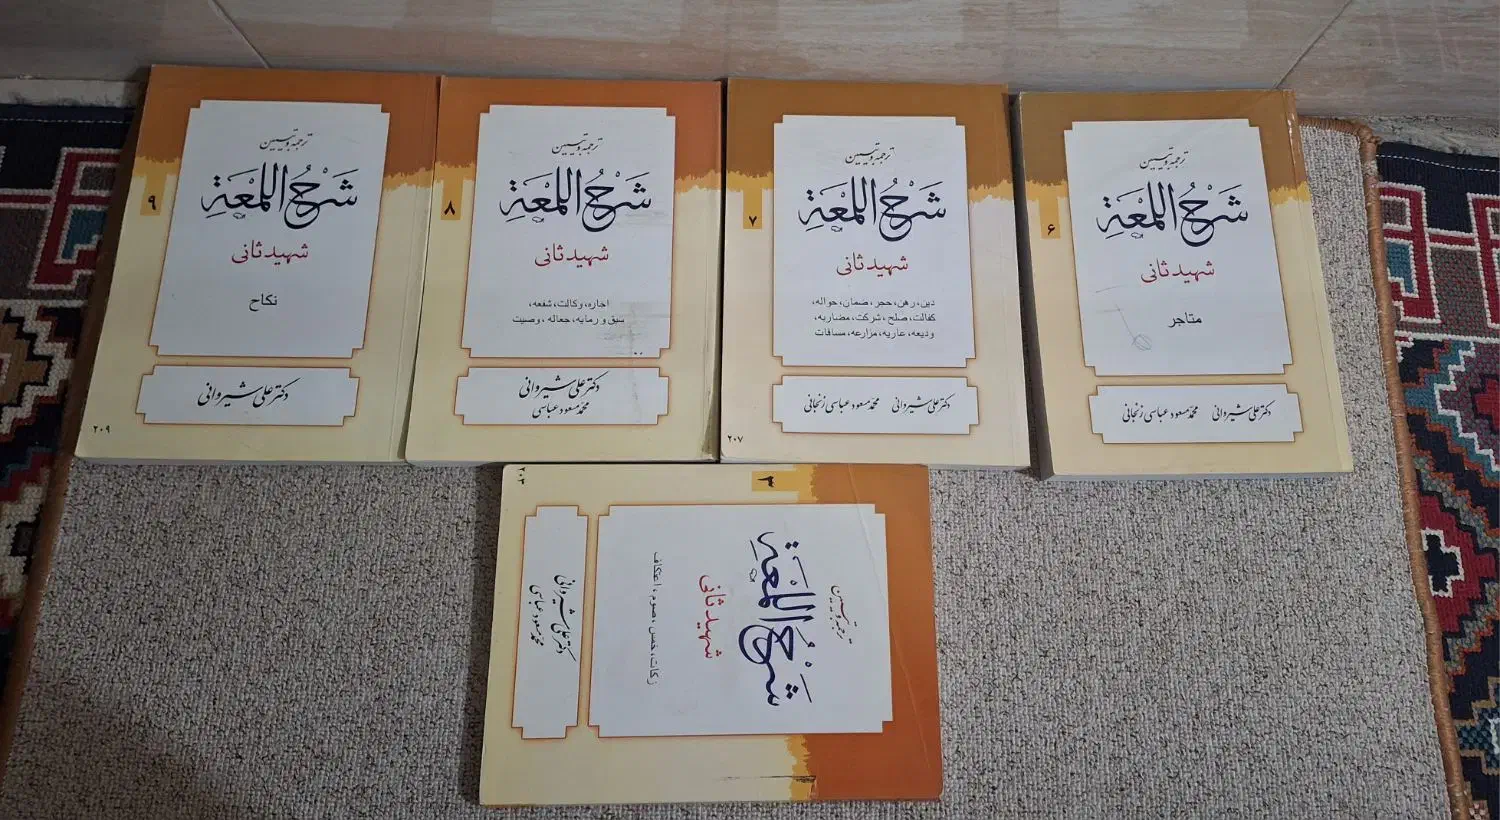 ترجمه و تبیین
شَرْحُ اللُّمْعَةِ
شهید ثانی
متاجر
۶
دکتر علی شیروانی محمد مسعود عباسی زنجانی
ترجمه و تبیین
شَرْحُ اللُّمْعَةِ
شهید ثانی
دین، رهن، حجر، ضمان، حواله،
کفالت، صلح، شرکت، مضاربه،
ودیعه، عاریه، مزارعه، مساقات
۷
دکتر علی شیروانی محمد مسعود عباسی زنجانی
۲۰۷
ترجمه و تبیین
شَرْحُ اللُّمْعَةِ
شهید ثانی
اجاره، وکالت، شفعه،
سبق و رمایه، جعاله، وصیت
۸
دکتر علی شیروانی
محمد مسعود عباسی
ترجمه و تبیین
شَرْحُ اللُّمْعَةِ
شهید ثانی
نکاح
۹
دکتر علی شیروانی
۲۰۹
ترجمه و تبیین
شَرْحُ اللُّمْعَةِ
شهید ثانی
زکات، خمس، صوم، اعتکاف
۳
دکتر علی شیروانی
محمد مسعود عباسی
۲۰۳